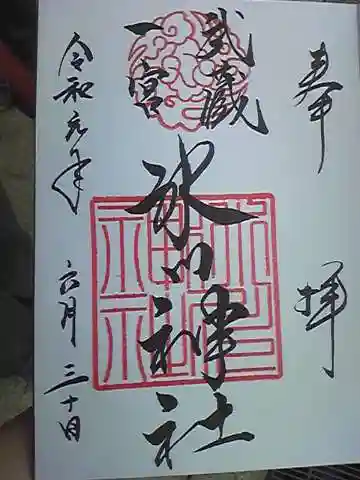 奉拝
武蔵
一宮
氷川神社
令和元年
六月三十日
氷川神社